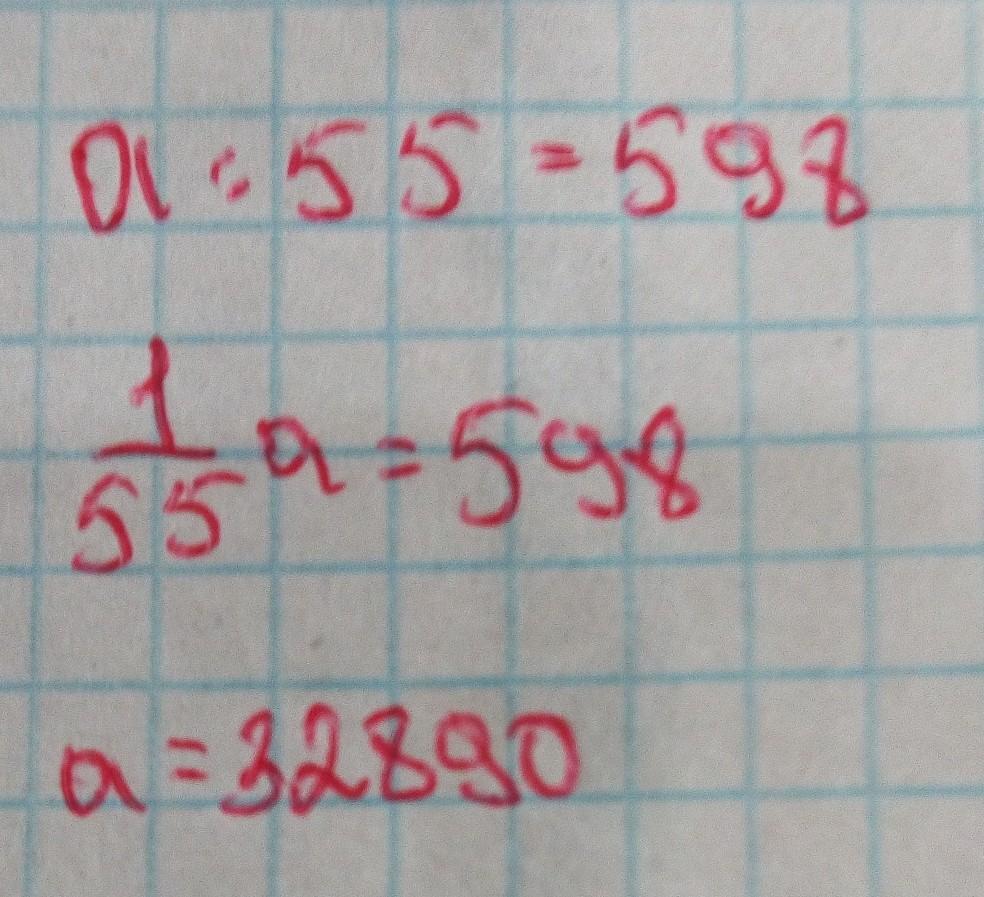 a : 55 = 598
1/55 a = 598
a = 32890